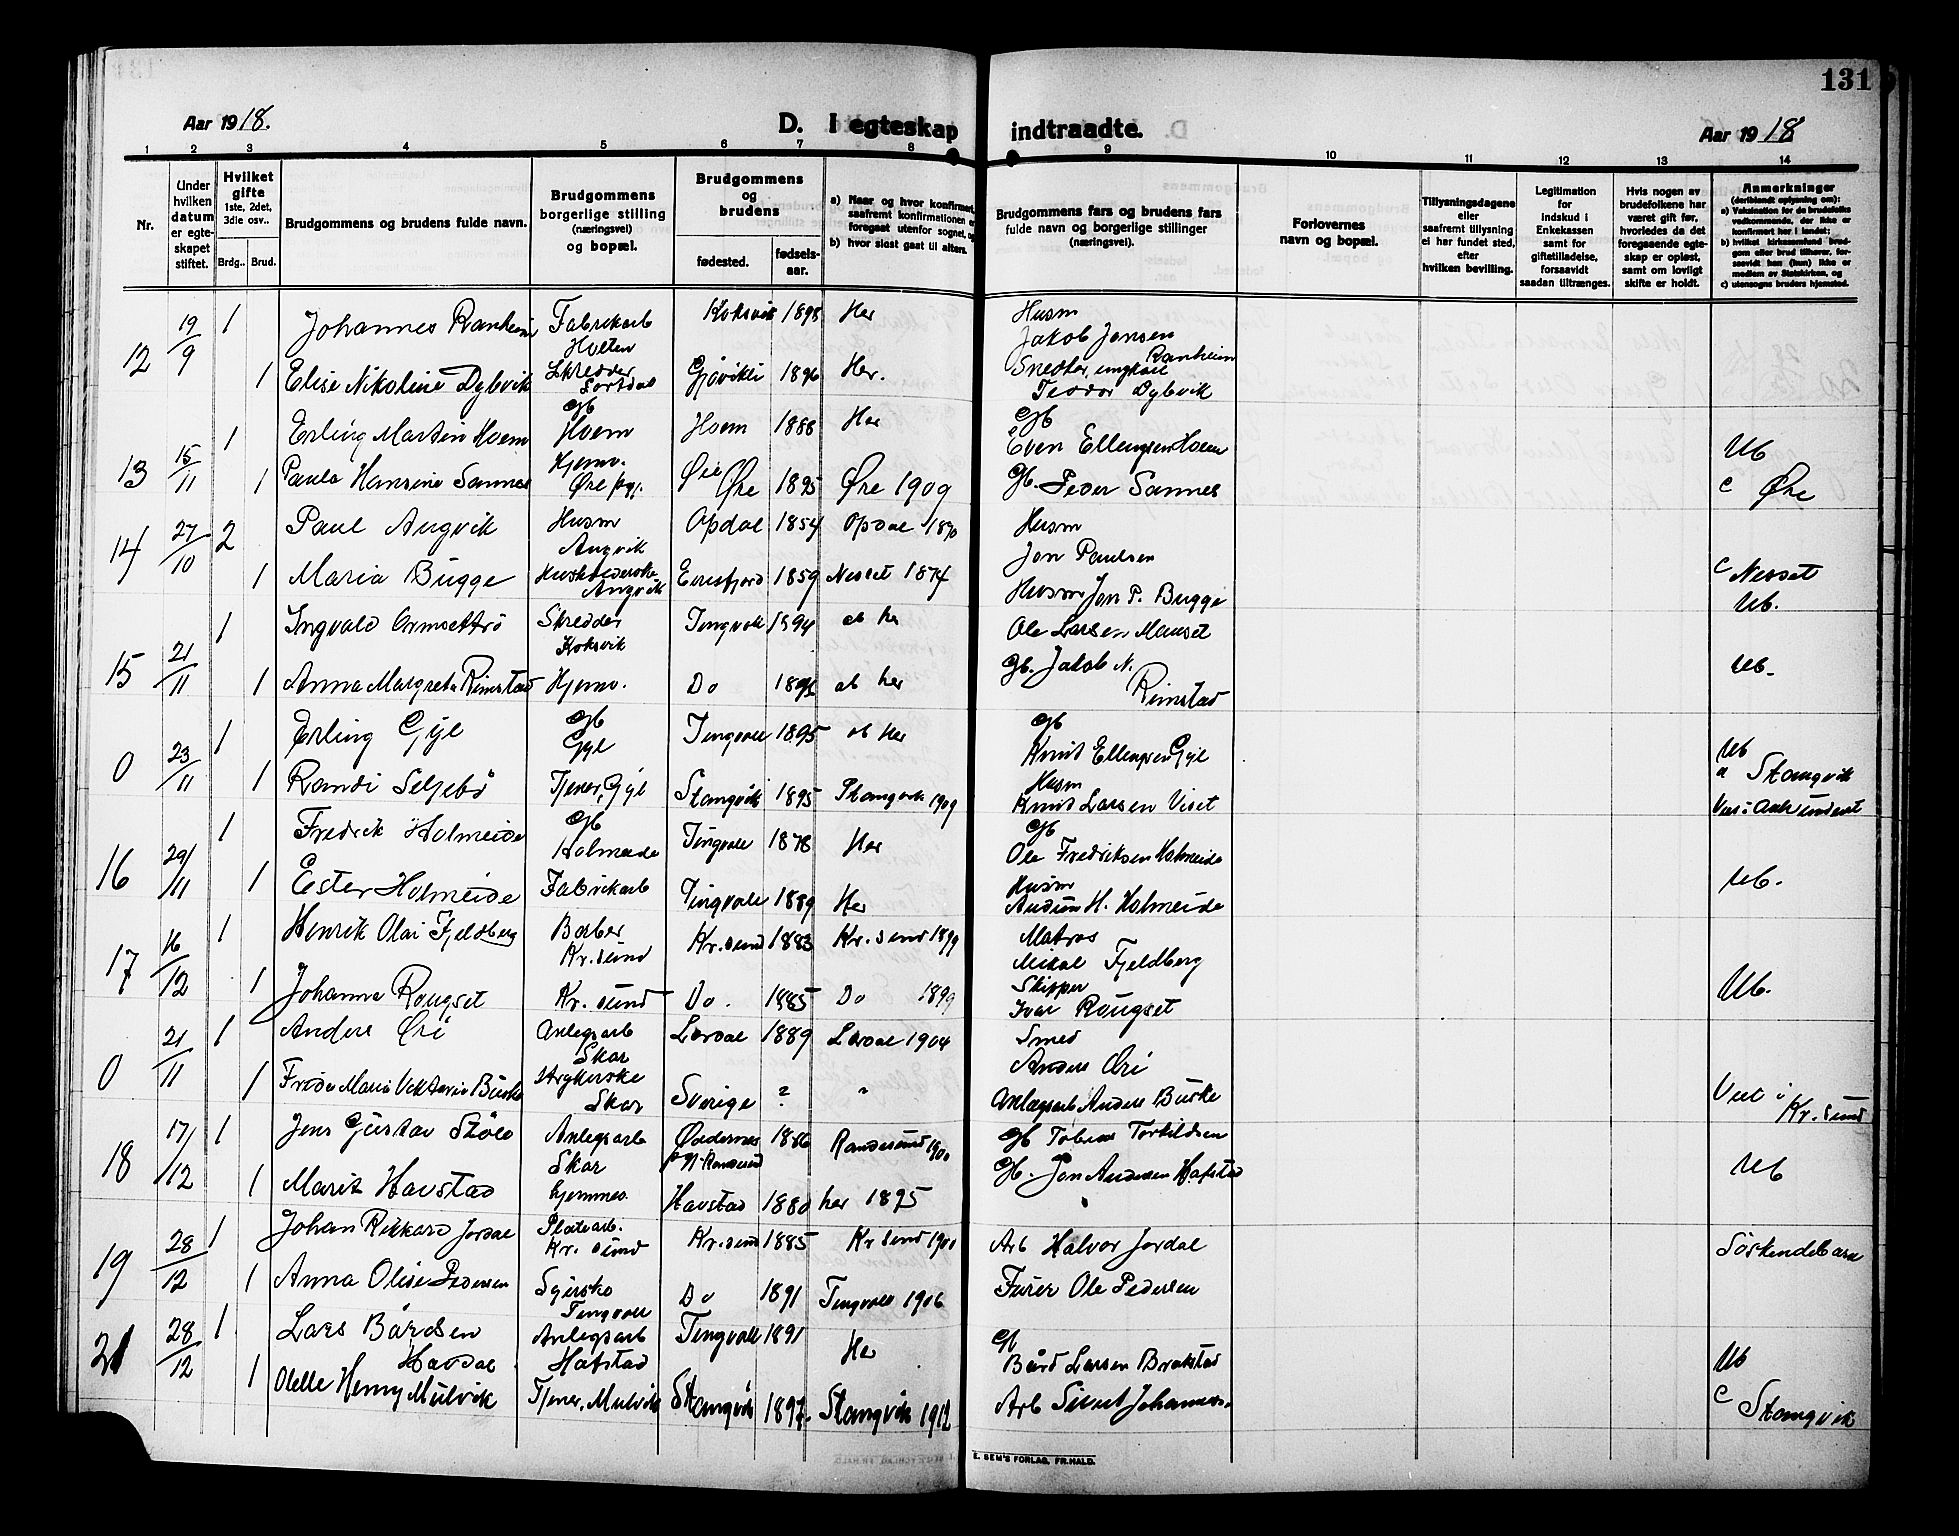 131
Aar 1918.
D. I egteskap indtraadte.
Aar 1918
1 2 3 4 5 6 7 8 9 10 11 12 13 14
Nr.
Under hvilken datum er egteskapet stiftet.
Hvilket gifte 1ste, 2det, 3die osv..
Brdg.. Brud.
Brudgommens og brudens fulde navn.
Brudgommens borgerlige stilling (næringsvei) og bopæl.
Brudgommens og brudens
fødested. fødselsaar.
a) Naar og hvor konfirmert, saafremt konfirmationen er foregaat utenfor sognet, og
b) hvor sidst gaat til alters.
Brudgommens fars og brudens fars fulde navn og borgerlige stillinger (næringsvei).
Forlovernes navn og bopæl.
Tillysningsdagene eller saafremt tillysning ei har fundet sted, efter hvilken bevilling.
Legitimation for Indskud i Enkekassen samt for giftetilladelse, forsaavidt saadan tiltrænges.
Hvis nogen av brudefolkene har været gift før, hvorledes da det foregaaende egteskap er opløst, samt om lovligt skifte er holdt.
Anmerkninger (deriblandt oplysning om):
a) Vaksination for de brudefolks vedkommende, der ikke er konfirmert her i landet;
b) hvilket kirkesamfund brudgom eller brud tilhører, forsaavidt han (hun) ikke er medlem av Statskirken, og
c) utensogns bruders hjemsted.
12 19/9 1 Johannes Ranheim Fabrikarb Holten Koksvik 1898 Her Husm Jakob Jensen Ranheim
1 Elise Nikoline Dybvik Skredder Gjøvikli 1896 Her. Snedker, ungkar Teodor Dybvik
13 15/11 1 Erling Martin Hoem Gb Hoem Hoem 1888 Her Gb Even Ellengsen Hoem Ub
1 Paula Hansine Sannes Hjemv. Øre pgj. Øre 1895 Øre 1909 Gb. Peder Sannes c Øre
14 27/10 2 Paul Angvik Husm Angvik Opdal 1854 Opdal 1870 Husm Jon Paulsen
1 Maria Bugge Husholderske Angvik Eirisfjord 1859 Nesset 1874 Husm Jon P. Bugge c Nesset Ub.
15 21/11 1 Ingvald Ormsettrø Skredder Koksvik Tingvoll 1894 ab her Ole Larsen Manset
1 Anna Margreta Rimstad Hjemv. Do ab her Gb. Jakob N. Rimstad Ub.
0 23/11 1 Erling Gyl Gb Gyl Tingvoll 1895 ab her Gb Knut Ellengsen Gyl Ub
1 Randi Seljebø Tjener, Gyl Stangvik 1895 Stangvik 1909 Husm Knut Larsen Viset a Stangvik
16 29/11 1 Fredrik Holmeide Gb Holmeide Tingvoll 1878 Her Gb Ole Fredriksen Holmeide
1 Ester Holmeide Fabrikarb Tingvoll 1889 Her Husm Audun H. Holmeide Ub.
17 16/12 1 Henrik Olai Fjeldberg Barber Kr.sund Kr.sund 1883 Kr.sund 1899 Matros Mikal Fjeldberg
1 Johanna Rougset Kr.sund Do. 1885 Do 1899 Skipper Ivar Rougset Ub.
0 21/11 1 Anders Øri Anlegsarb Skar Lærdal 1889 Lærdal 1904 Smed Anders Øri
1 Frida Maria Viktoria Burke Strykerske Skar Sverige ? " Anlægsarb Anders Burke Viet i Kr.sund
18 17/12 1 Jens Gustav Støle Anlegsarb Skar 1886 Randesund 1900 Gb Tobias Torkildsen
1 Marit Havstad hjemmev. Havstad 1880 her 1895 Gb. Jon Andersen Hafstad Ub
19 28/12 1 Johan Rikkard Jordal Platearb. Kr.sund Kr.sund 1885 Kr sund 1900 Arb Halvor Jordal Søskendebarn
1 Anna Olise Pedersen Syerske Tingvoll Do 1891 Tingvoll 1906 Furer Ole Pedersen
21 28/12 1 Lars Bårdsen Havdal Anlegsarb Hafstad Tingvoll 1891 Her Gb Bård Larsen Brakstad Ub
1 Olelle Henny Mulvik Tjener, Mulvik Stangvik 1897. Stangvik 1912 Arb Sivert Johannes. c Stangvik
E. SEM'S FORLAG, FR.HALD.